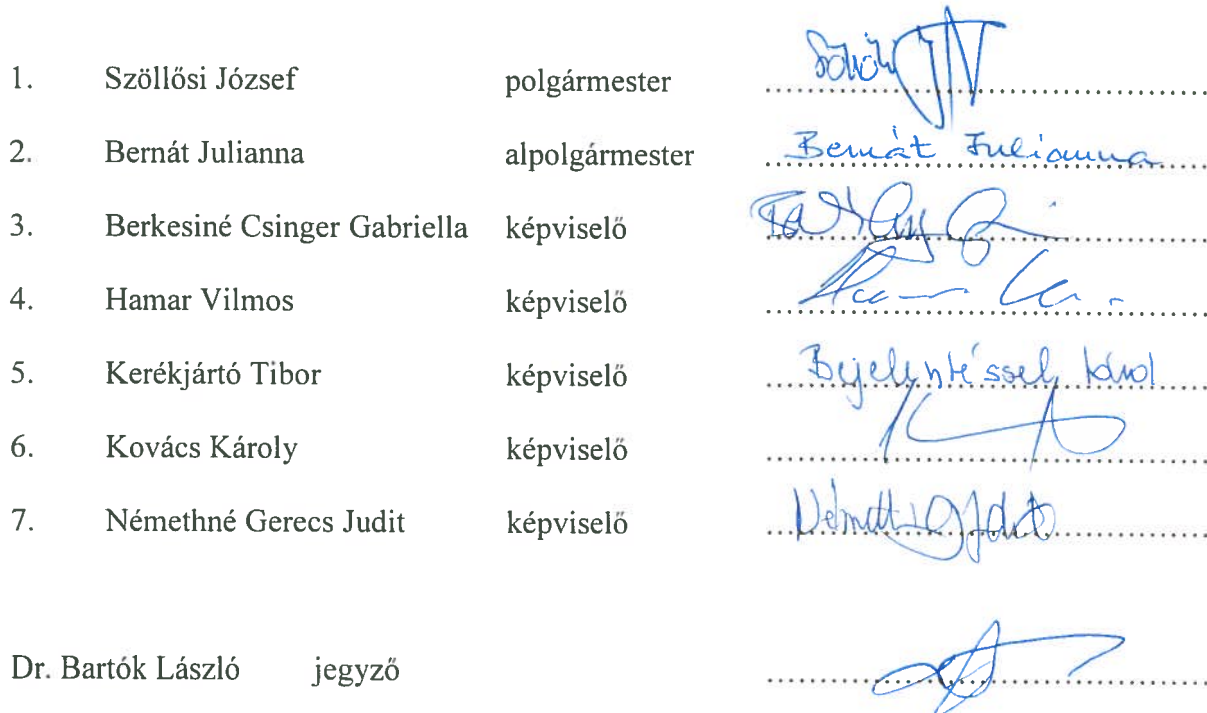 1. Szöllősi József polgármester
2. Bernát Julianna alpolgármester Bernát Julianna
3. Berkesiné Csinger Gabriella képviselő
4. Hamar Vilmos képviselő
5. Kerékjártó Tibor képviselő Bejelentéssel távol
6. Kovács Károly képviselő
7. Némethné Gerecs Judit képviselő
Dr. Bartók László jegyző